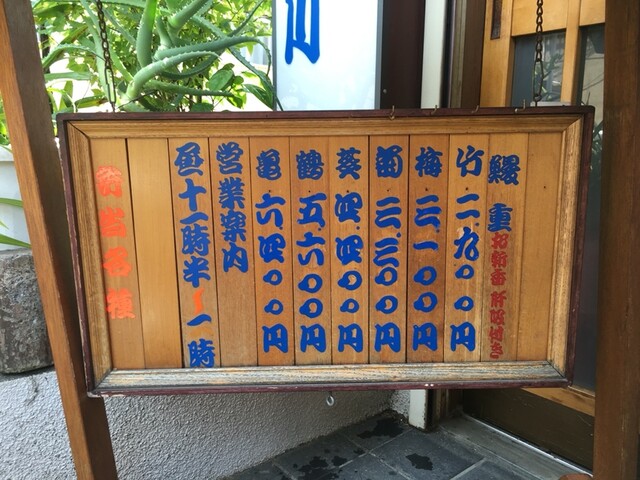 川
鰻重 お新香 肝吸付き
竹 二、九〇〇円
梅 三、一〇〇円
菊 三、三〇〇円
葵 四、四〇〇円
鶴 五、六〇〇円
亀 六、四〇〇円
営業案内
昼十一時半〜一時
各種